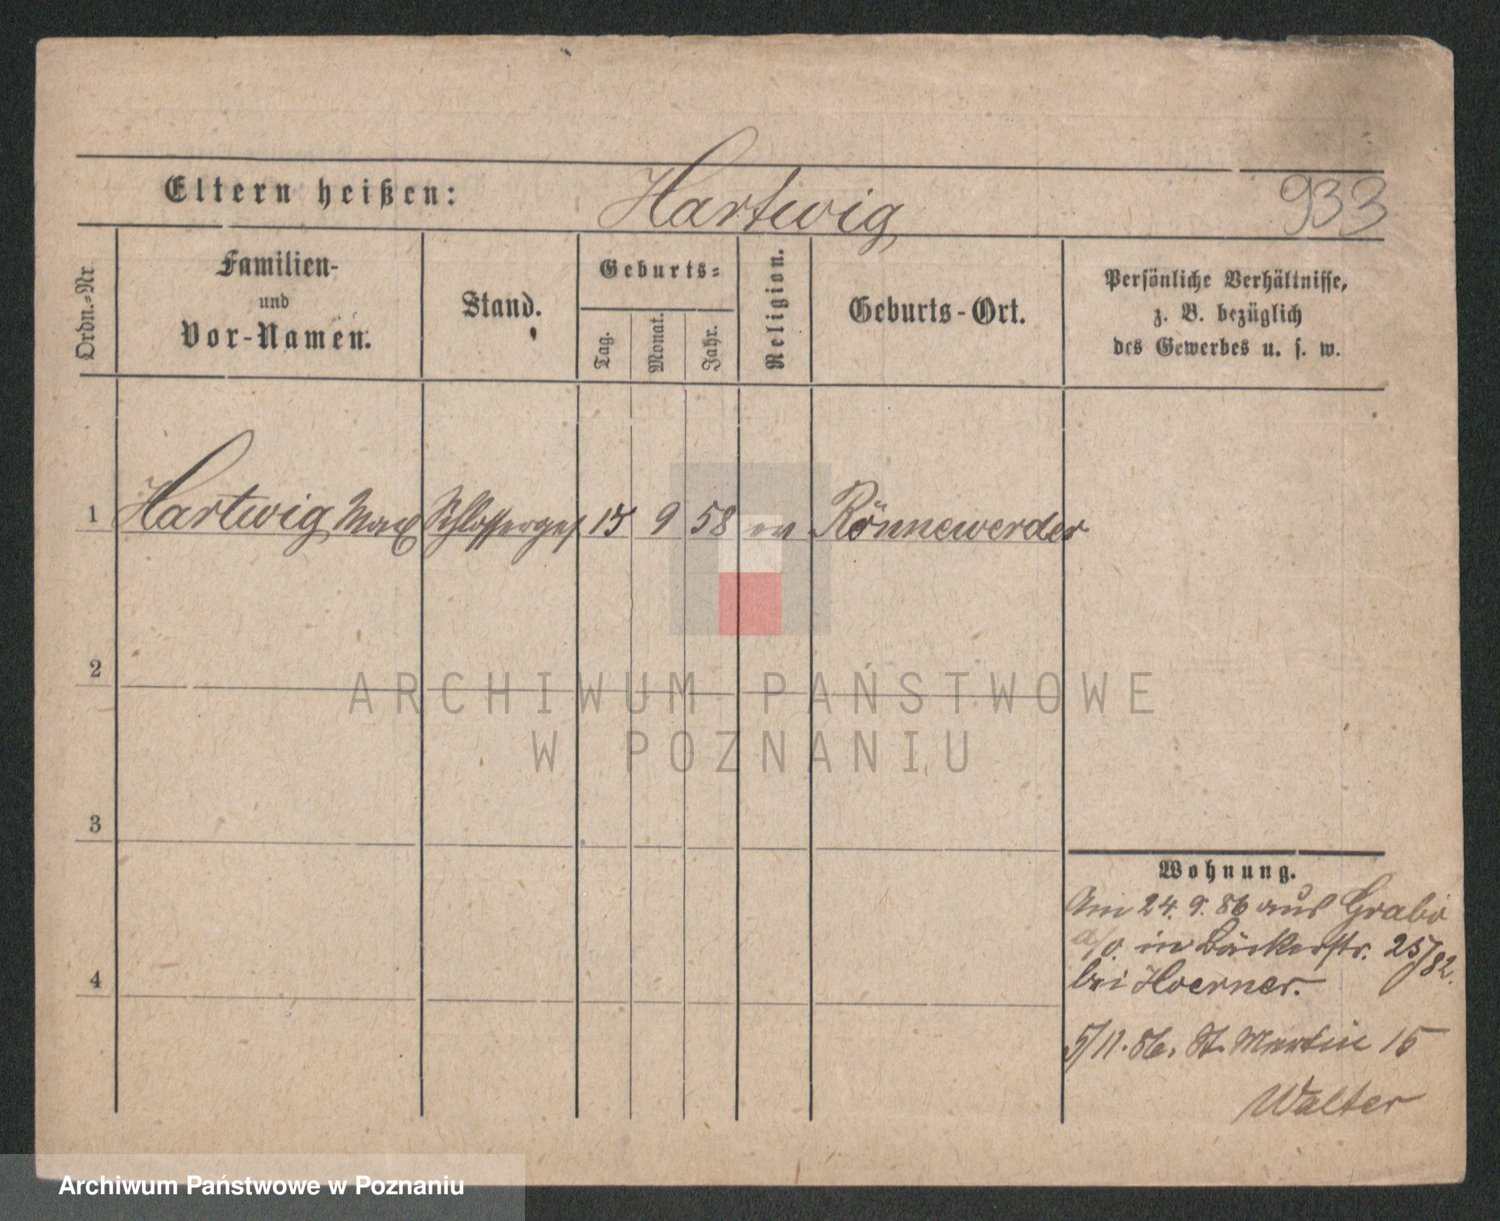 Eltern heißen: Hartwig 933
Ordn.-Nr
Familien-
und
Vor-Namen.
Stand.
Geburts-
Tag.
Monat.
Jahr.
Religion.
Geburts-Ort.
Persönliche Verhältnisse,
z. B. bezüglich
des Gewerbes u. s. w.
1 Hartwig Max Schlosserges. 15 9 58 ev Rönnewerder
2
3
4
Wohnung.
Am 24. 9. 86 aus Grabo
a/O. in Bäckerstr. 25/82.
bei Hoerner.
5/11. 86. St. Martin 15
Walter
ARCHIWUM PAŃSTWOWE
W POZNANIU
Archiwum Państwowe w Poznaniu